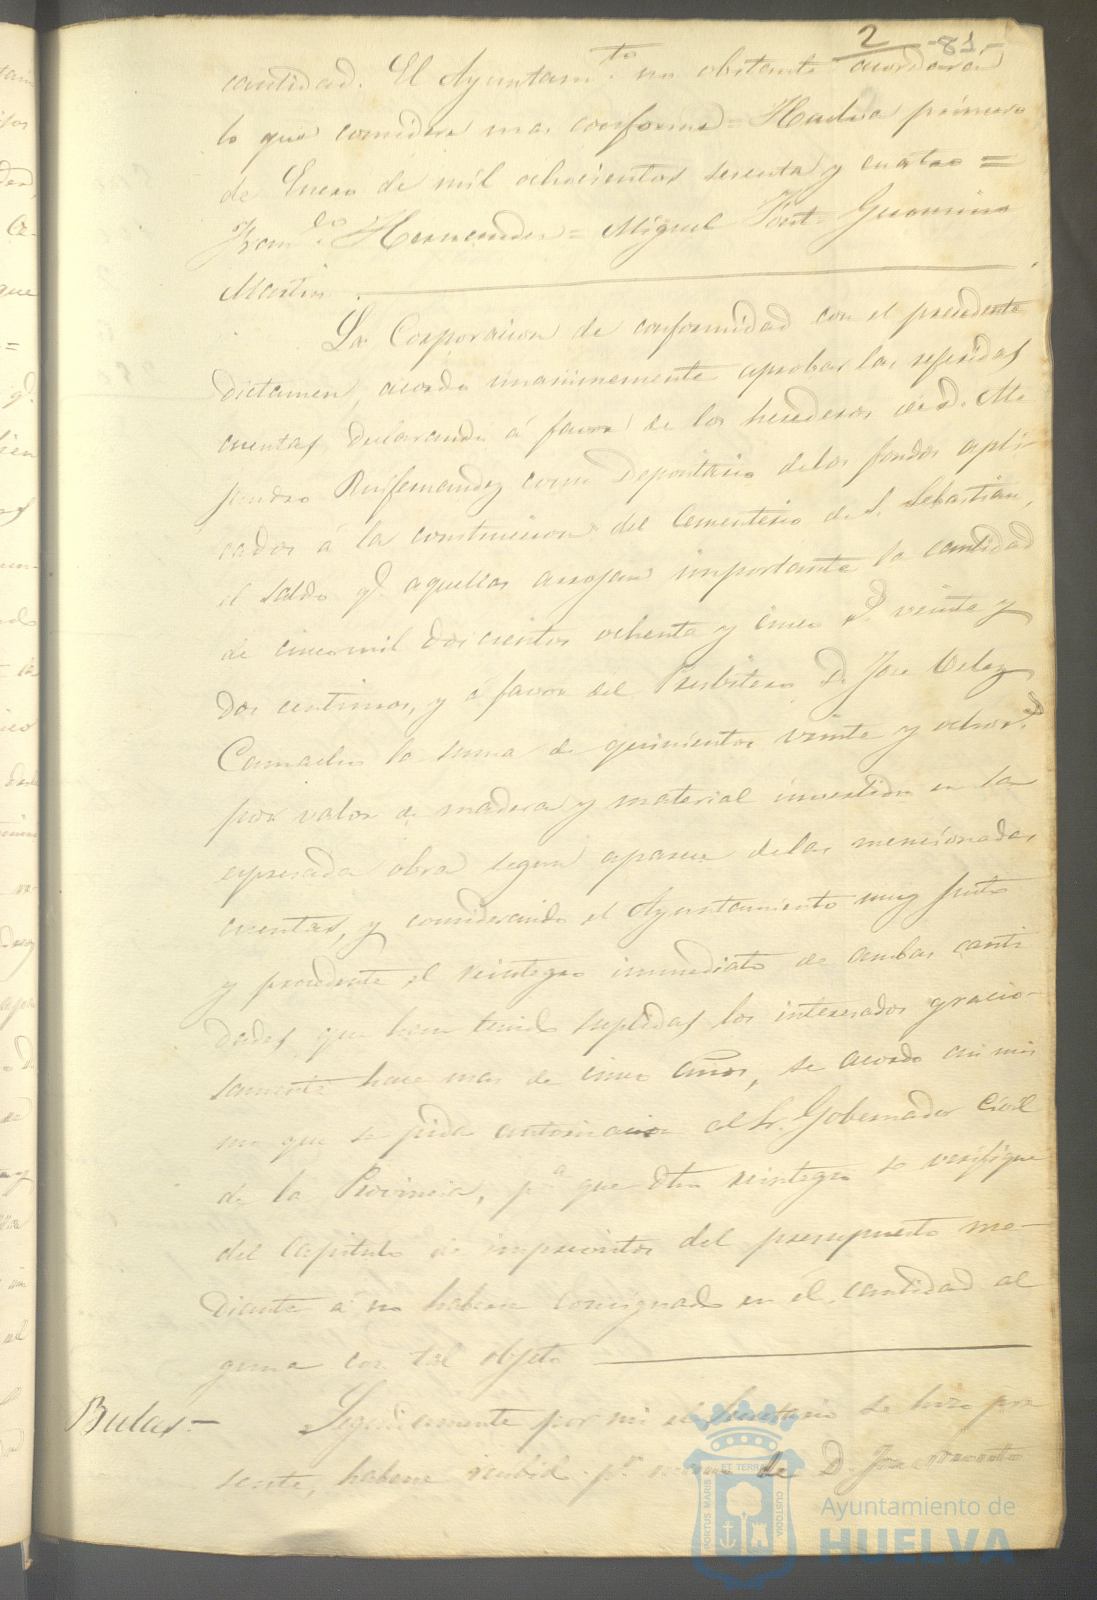 2 -81-
cantidad. El Ayuntam.to no obstante acordara
lo que considere mas conforme = Huelva primero
de Enero de mil ochocientos sesenta y cuatro =
Fran.co Hernandez = Miguel Font = Geronimo
Martin.
La Corporacion de conformidad con el precedente
dictamen, acordo unanimemente aprobar las referidas
cuentas declarando á favor de los herederos de D. Ale
jandro Ruifernandez como Depositario de los fondos apli
cados á la construccion del Cementerio de S. Sebastian,
el saldo q.e aquellas arrojan importante la cantidad
de cinco mil doscientos ochenta y cinco r.s veinte y
dos centimos, y á favor del Presbitero D. Jose Velez
Camacho la suma de quinientos veinte y ocho r.s
por valor de madera y material invertido en la
espresada obra segun aparece de las mencionadas
cuentas, y considerando el Ayuntamiento muy justo
y procedente el reintegro inmediato de ambas canti
dades que han tenido suplidas los interesados gracio-
samente hace mas de cinco años, se acordo asi mis
mo que se pida autorizacion al Sr. Gobernador Civil
de la Provincia, p.a que dho reintegro se verifique
del capitulo de imprevistos del presupuesto me-
diante á no haberse consignado en él cantidad al
guna con tal objeto
Bulas - Seguidamente por mi el Secretario se hizo pre
sente, haberse recibido p.r de D. Jose
PORTUS MARIS ET TERRAE CUSTODIA
Ayuntamiento de
HUELVA